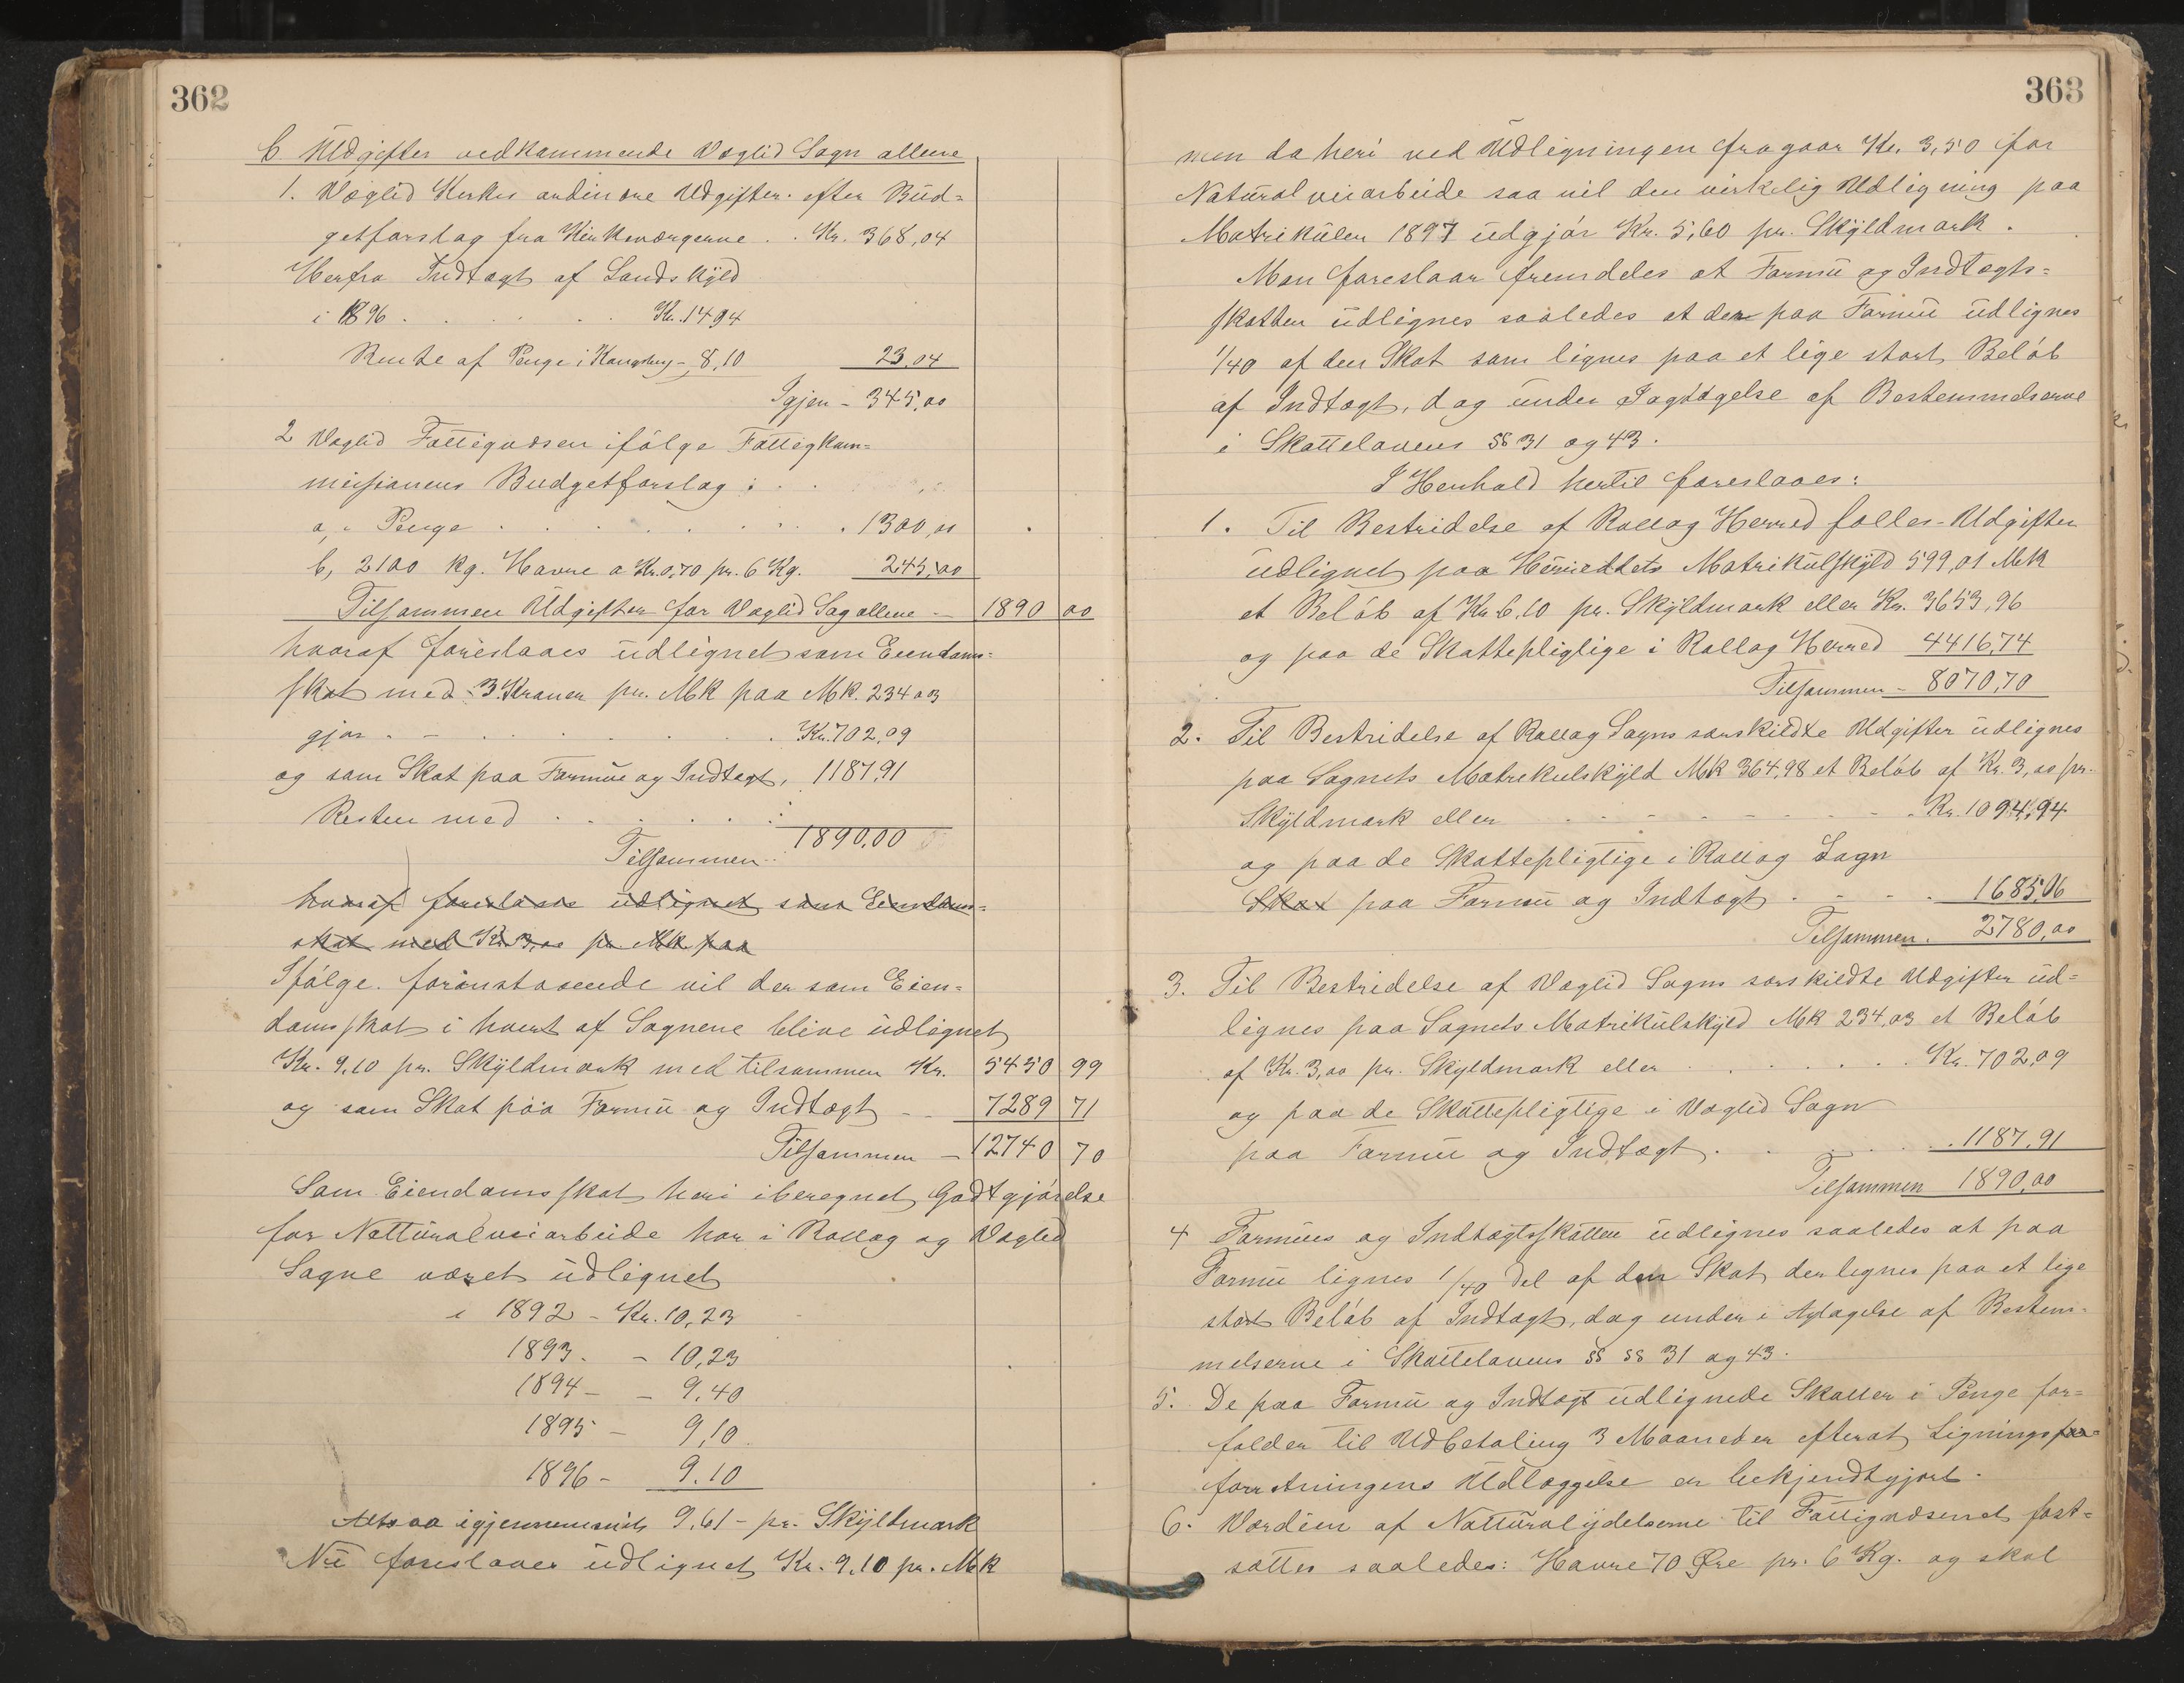 362
C. Udgifter vedkommende Væglid Sogn allene
1. Væglid Kirkes ordinære Udgifter efter Bud=
getforslag fra Kirkeværgerne . . Kr. 368,04
Herfra Indtægt af Landskyld
i 1896 . . . . . . Kr. 1494
Rente af Penge i Kongsberg - 8,10 23,04
Igjen - 345,00
2 Væglid Fattigvæsen ifölge Fattigkom=
missionens Budgetforslag :
a, i Penge . . . . . . . . 1300,00
b, 2100 kg. Havre a Kr. 0,70 pr. 6 Kg. 245,00
Tilsammen Udgifter for Væglid Sog allene - 1890 00
hvoraf foreslaaes udlignet som Eiendoms=
skat med 3 Kroner pr. Mk paa Mk. 234 03
gjør . - . . . . . . . Kr. 702,09
og som Skat paa Formue og Indtægt, 1187,91
Resten med . . . . . .
Tilsammen 1890,00
hvoraf foreslaaes udlignet som Eiendoms=
skat med Kr. 3,00 pr Mk paa
Ifölge foranstaaende vil der som Eien=
domsskat i hvert af Sognene blive udlignet
Kr. 9,10 pr. Skyldmark med tilsammen Kr. 5450 99
og som Skat paa Formue og Indtægt - - 7289 71
Tilsammen - 12740 70
Som Eiendomsskat heri iberegnet Godtgjörelse
for Natturalveiarbeide har i Rollag og Væglid
Sogne været udlignet
i 1892 - Kr. 10,23
1893. - 10,23
1894 - - 9,40
1895 - 9,10
1896 - 9.10
Altsaa igjennemsnit 9,61 - pr. Skyldmark
Nu foreslaaes udlignet Kr. 9,10 pr. Mk
363
men da heri ved Udligningen fragaar Kr. 3,50 for
Naturalveiarbeide saa vil den virkelig Udligning paa
Matrikülen 1897 udgjör Kr. 5,60 pr. Skyldmark.
Man foreslaar fremdeles at Formu og Indtægts=
skatten udlignes saaledes at der paa Formue udlignes
1/40 af den Skat som lignes paa et lige stort Belöb
af Indtægt, dog under Iagttagelse af Bestemmelserne
i Skattelovens §§ 31 og 43.
I Henhold hertil foreslaaes:
1. Til Bestridelse af Rollag Herred fælles-Udgifter
udlignet paa Herreddets Matrikulskyld 599,01 Mk
et Belöb af Kr. 6,10 pr. Skyldmark eller Kr. 3653,96
og paa de Skattepligtige i Rollag Herred 4416,74
Tilsammen - 8070,70
2. Til Bestridelse af Rollag Sogns særskildte Udgifter udlignes
paa Sognets Matrekulskyld Mk 364,98 et Belöb af Kr. 3,00 pr.
Skyldmark eller - - - - - - - - Kr. 1094,94
og paa de Skattepligtige i Rollag Sogn
Skat paa Formu og Indtægt . - - . 1685,06
Tilsammen. 2780,00
3. Til Bestridelse af Væglid Sogns særskildte Udgifter ud=
lignes paa Sognets Matrikulskyld Mk 234,03 et Belöb
af Kr. 3,00 pr. Skyldmark eller . . . . . . Kr. 702,09
og paa de Skattepligtige i Væglid Sogn
paa Formue og Indtægt . . . . . 1187,91
Tilsammen 1890,00
4 Formues og Indtægtsskatten udlignes saaledes at paa
Formu lignes 1/40 del af den Skat der lignes paa et lige
stort Belöb af Indtægt, dog under i Agtagelse af Bestem-
melserne i Skattelovens §§ §§ 31 og 43.
5. De paa Formu og Indtægt udlignede Skatter i Penge for=
falder til Udbetaling 3 Maaneder efterat Lignings for=
forretningens Udlæggelse er bekjendtgjort.
6. Værdien af Natturalydelserne til Fattigvæsenet fast=
sættes saaledes: Havre 70 Øre pr. 6 Kg. og skal